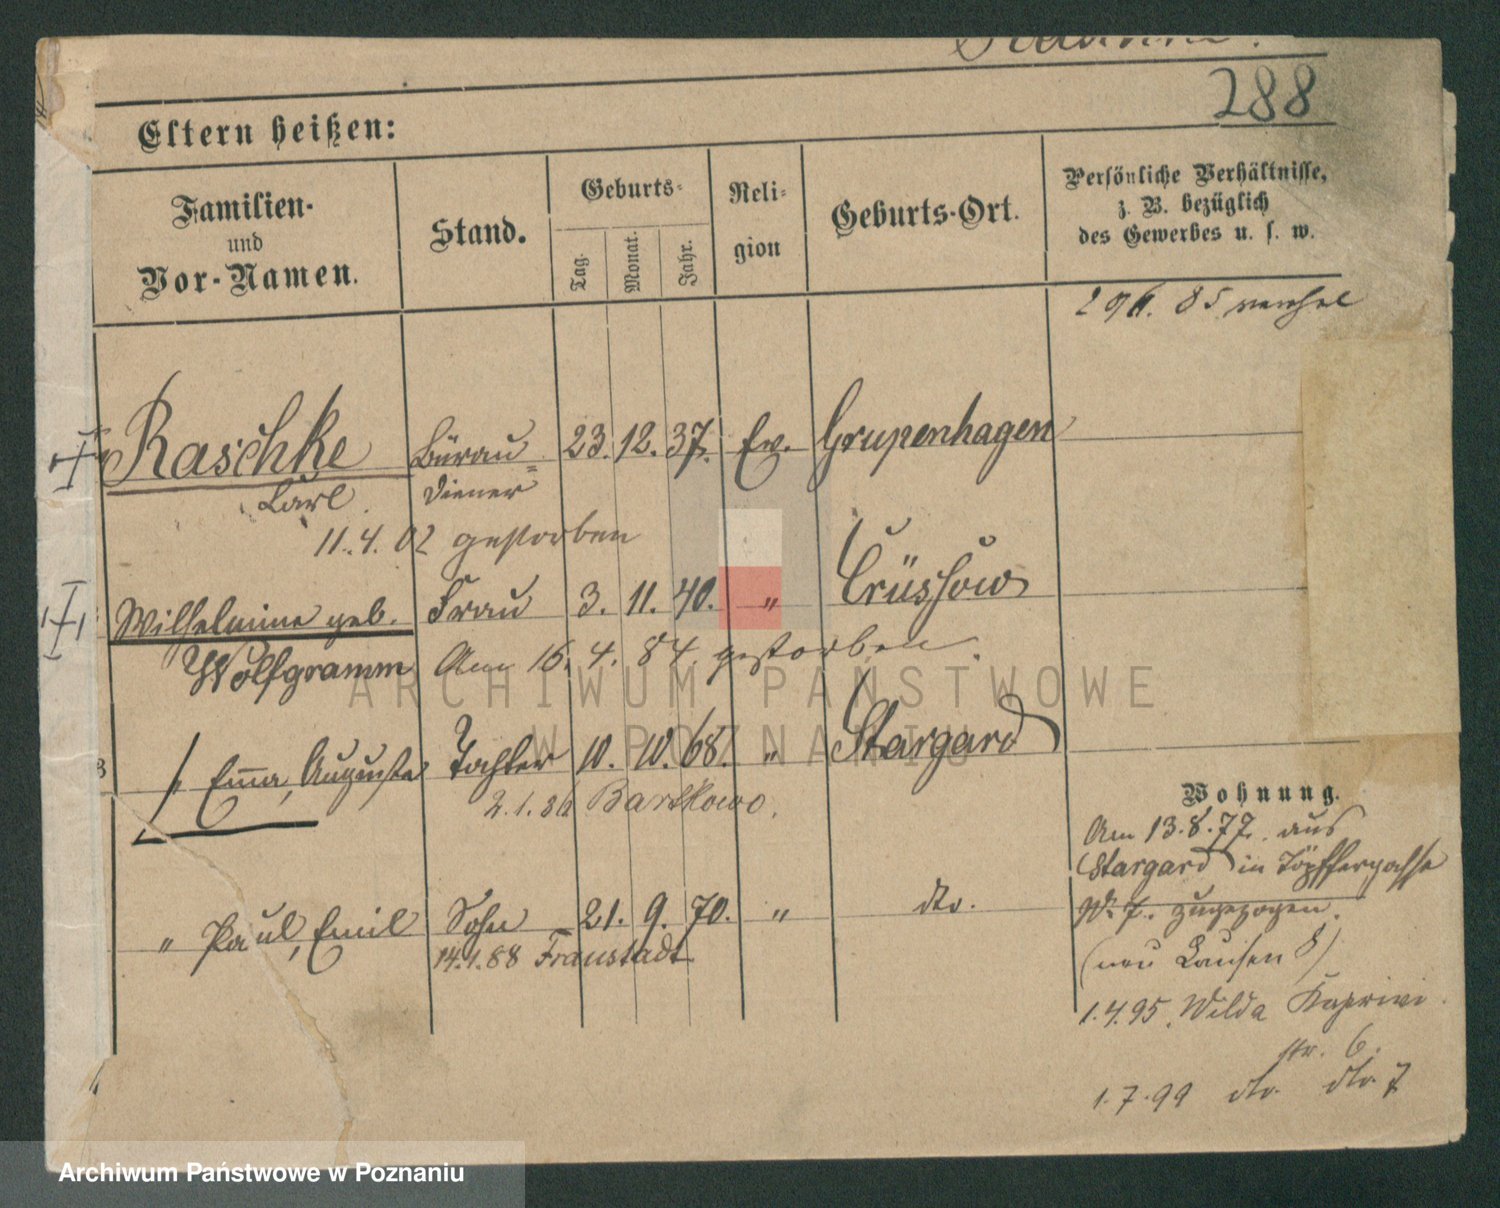 288
Eltern heißen:
Familien- und Vor-Namen.
Stand.
Geburts-
Tag.
Monat.
Jahr.
Religion
Geburts-Ort.
Persönliche Verhältnisse,
z. B. bezüglich
des Gewerbes u. s. w.
85
Raschke Büreau= 23. 12. 37. Ev. Grupenhagen
Carl. Diener
11.4.02 gestorben
Wilhelmine geb. Frau 3. 11. 40. " Crüssow
Wolfgramm Am 16. 4. 84. gestorben.
Emma, Auguste Tochter 10. 10. 68. " Stargard
2.1.86 Bartkowo.
" Paul, Emil Sohn 21. 9. 70. " dto.
14.1.88 Fraustadt
Wohnung.
Am 13.8.77. aus
Stargard in Töpffergasse
No 7. zugezogen.
1.4.95. Wilda Kaprivi
str. 6.
1.7.99 dto. dto. 7
ARCHIWUM PAŃSTWOWE
W POZNANIU
Archiwum Państwowe w Poznaniu